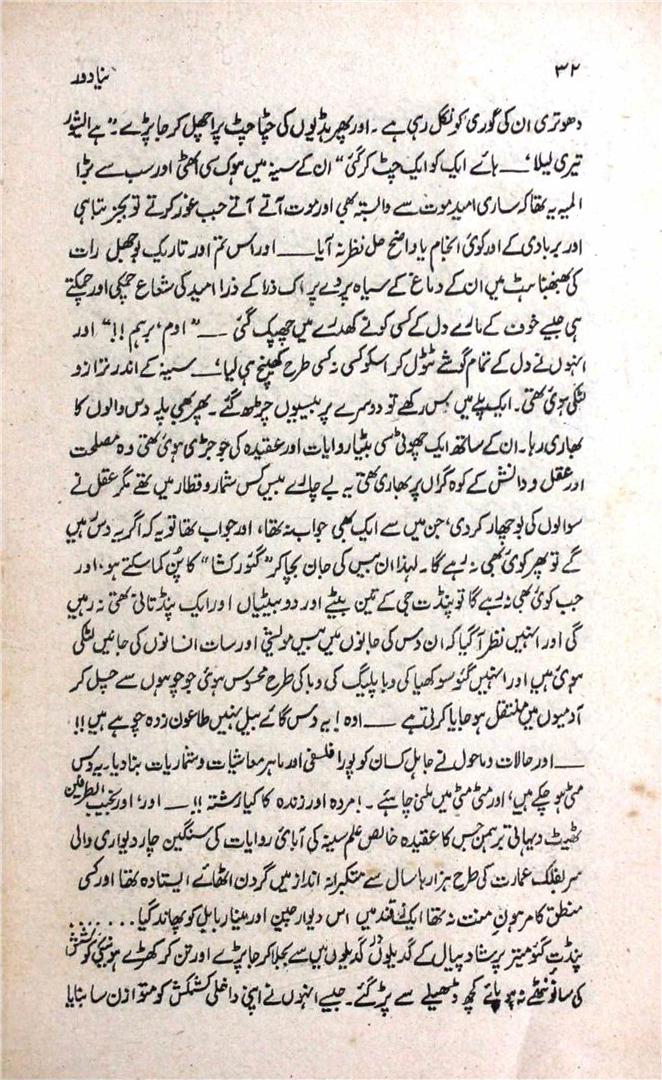 ۳۲
نیا دور
دھوتری ان کی گوری کو نگل رہی ہے ۔ اور پھر ہڈیوں کی چٹا چٹ پر اچھل کر جا پڑے ۔ "ہے ایشور
تیری لیلا‘ — ہائے ایک کو ایک چٹ کر گئی“ ان کے سینہ میں ہوک سی اٹھی اور سب سے بڑا
المیہ یہ تھا کہ ساری امید موت سے وابستہ تھی اور موت آتے آتے جب غور کرتے تو بجز تباہی
اور بربادی کے اور کوئی انجام یا واضح حل نظر نہ آیا — اور اس تم اور تاریک بوجھل رات
کی بھنبھناہٹ میں ان کے دماغ کے سیاہ پردے پر اک ذرا کے ذرا امید کی شعاع چمکی اور چمکتے
ہی جیسے خوف کے مارے دل کے کسی کونے کھدرے میں چھپک گئی — ”اوم‘ برہم !!“ اور
انہوں نے دل کے تمام گوشے ٹٹول کر اسکو کسی نہ کسی طرح کھینچ ہی لیا‘ — سینہ کے اندر ترازو
لٹکی ہوئی تھی ۔ ایک پلے میں بس رکھے تو دوسرے پر بیسیوں چڑھ گئے ۔ پھر بھی پلہ دس والوں کا
بھاری رہا ۔ ان کے ساتھ ایک چھوٹی سی بٹیا روایات اور عقیدہ کی جو جڑی ہوئی تھی وہ مصلحت
اور عقل و دانش کے کوہ گراں پر بھاری تھی یہ بے چارے بیس کس شمار و قطار میں تھے مگر عقل نے
سوالوں کی بوچھار کر دی‘ جن میں سے ایک بھی جواب نہ تھا، اور جواب تھا تو یہ کہ اگر یہ دس رہیں
گے تو پھر کوئی بھی نہ رہے گا ۔ لہٰذا ان بیس کی جان بچا کر ”گئو رکشا“ کا پُن کما سکتے ہو، اور
جب کوئی بھی نہ رہے گا تو پنڈت جی کے تین بیٹے اور دو بیٹیاں اور ایک پنڈتانی بھی نہ رہیں
گی اور انہیں نظر آ گیا کہ ان دس کی جانوں میں بیس مویشی اور سات انسانوں کی جانیں لٹکی
ہوئی ہیں اور انہیں گئو سوکھیا کی وبا پلیگ کی وبا کی طرح محسوس ہوئی جو چوہوں سے چل کر
آدمیوں میں منتقل ہو جایا کرتی ہے — اوہ ! یہ دس گائے بیل نہیں طاعون زدہ چوہے ہیں !!
— اور حالات و ماحول نے جاہل کسان کو پورا فلسفی اور ماہر معاشیات و شماریات بنا دیا ۔ یہ دس
مٹی ہو چکے ہیں‘ اور مٹی مٹی میں ملنی چاہئے ۔ ! مردہ اور زندہ کا کیا رشتہ !! — اور‘ اور نجیب الطرفین
ٹھیٹ دیہاتی تر برہمن جس کا عقیدہ خالص علم سینہ کی آبائی روایات کی سنگین چار دیواری والی
سر بفلک عمارت کی طرح ہزارہا سال سے متکبرانہ انداز میں گردن اٹھائے ایستادہ تھا اور کسی
منطق کا مرہونِ منت نہ تھا ایک قند میں اس دیوار چین اور مینار بابل کو پھاند گیا . . . . . . .
پنڈت گئو میتر پرشاد پیال کے گدیلوں میں سے بھلا کر جا پڑے اور تن کر کھڑے ہونیکی کوشش
کی سانو نٹھے نہ ہو پائے کچھ ڈھیلے سے پڑ گئے ۔ جیسے انہوں نے اپنی داخلی کشمکش کو متوازن سا بنایا